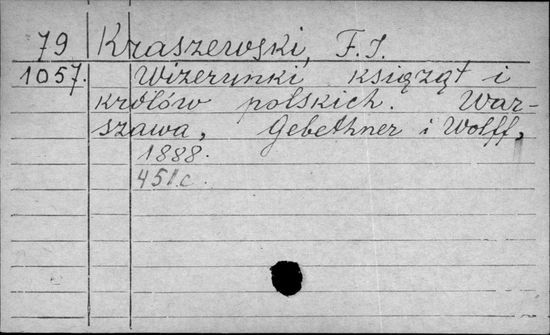 79 Kraszewski, F.I.
1057. Wizerunki książąt i
królów polskich. War-
szawa, Gebethner i Wolff,
1888.
451 c.